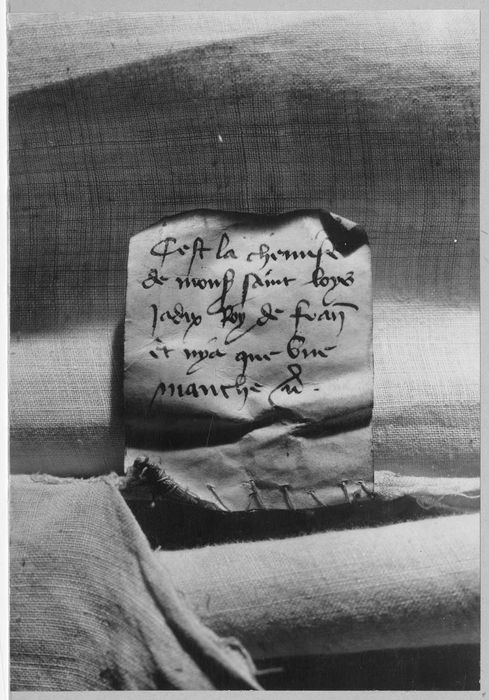 C'est la chemise
de mons saint loys
jadix Roy de fran
et ny a que une
manche